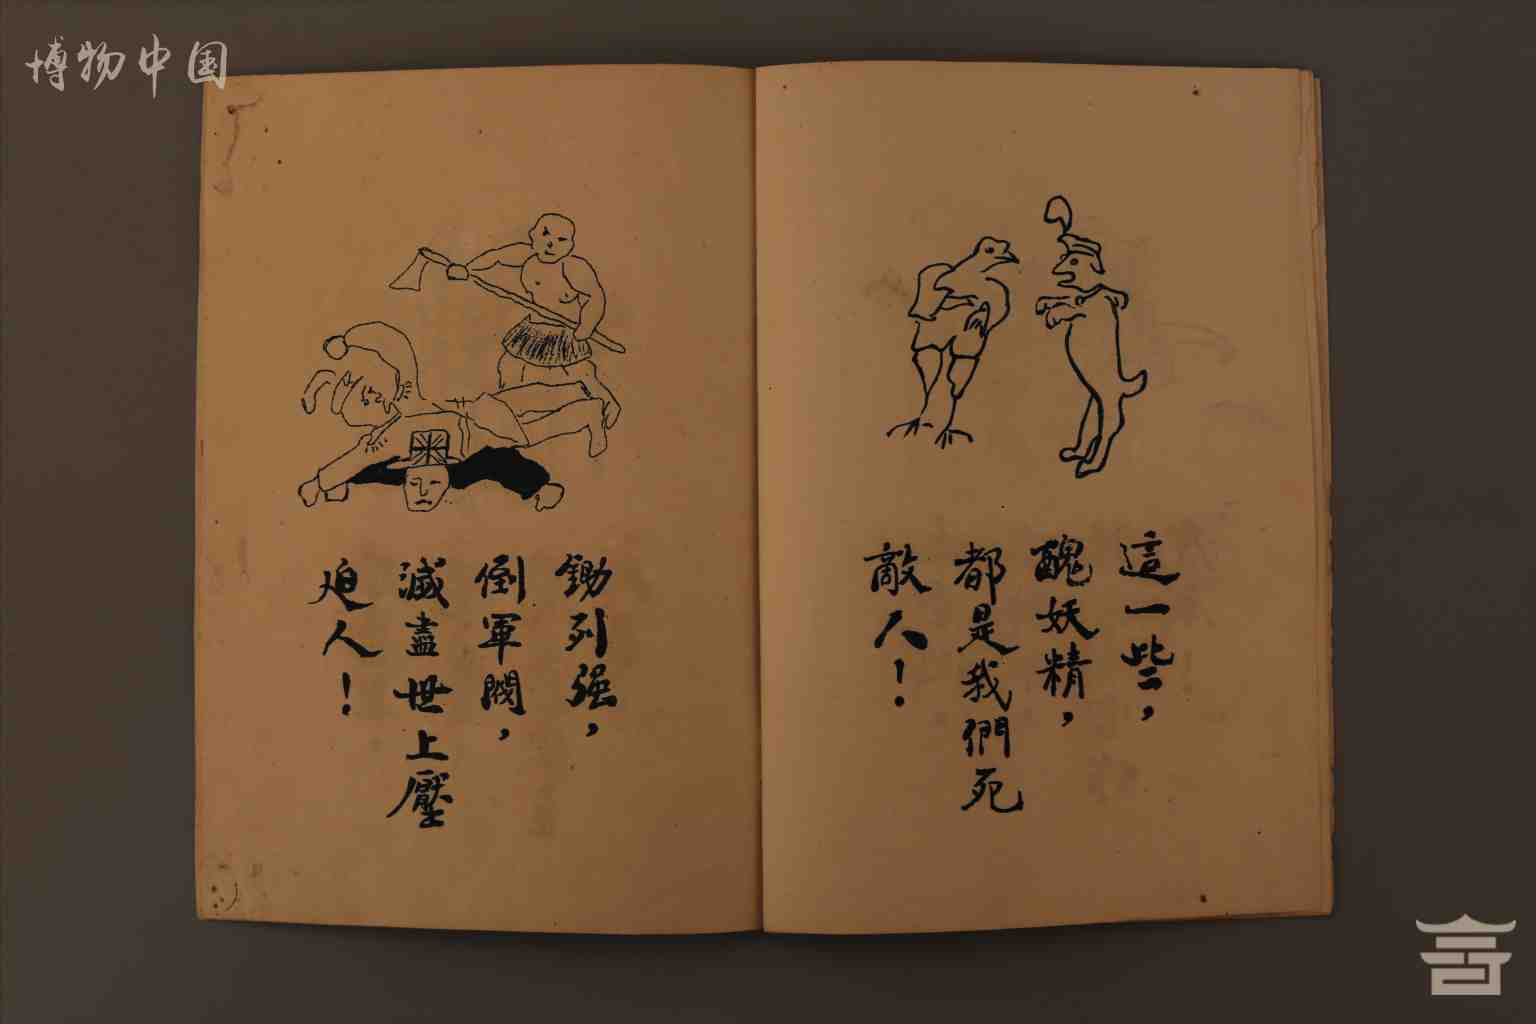 博物中国
這一些，
醜妖精，
都是我們死
敵人！
鋤列强，
倒軍閥，
滅盡世上壓
迫人！